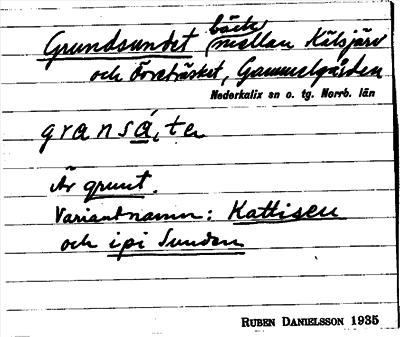 Grundsundet bäck mellan Kälsjärv
och Övreträsket, Gammelgården
Nederkalix sn o. tg. Norrb. län
gransá,te
Är grunt.
Variantnamn: Kattisen
och ipi Sunden
RUBEN DANIELSSON 1935